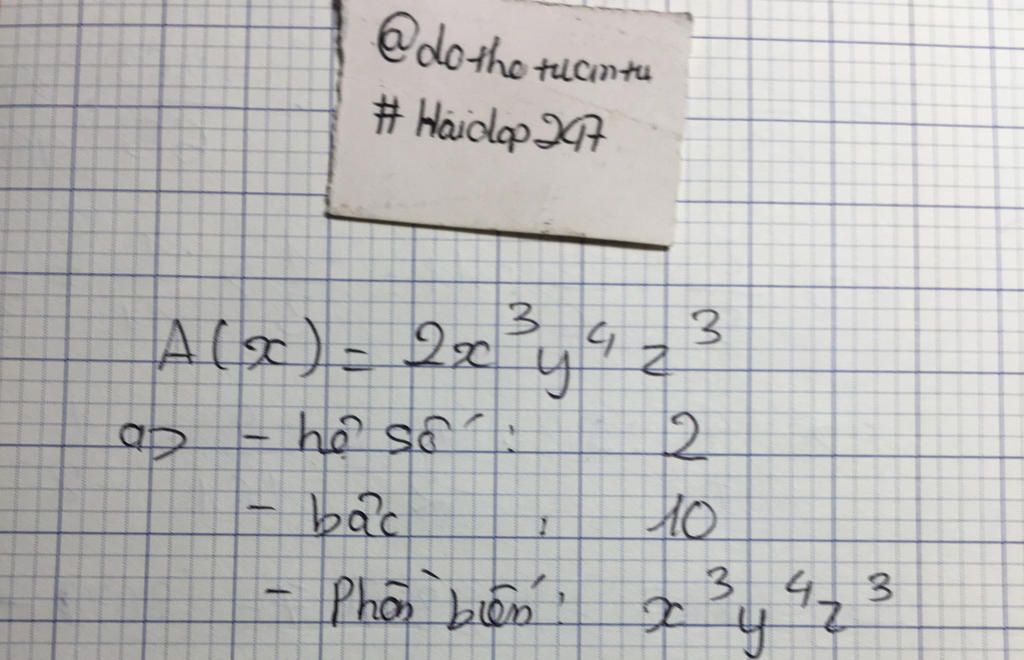 @dothotucintu
# Hỏidap247
A(x) = 2x³y⁴z³
a> - hệ số : 2
- bậc : 10
- Phần biến : x³y⁴z³